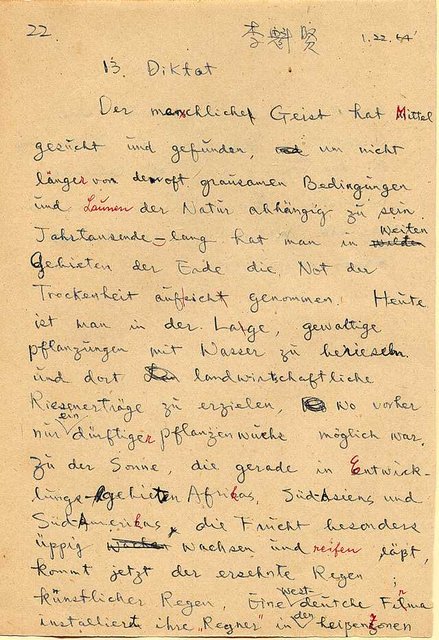 22.
李魁賢
1.22.64
13. Diktat
Der menschliche Geist hat Mittel
gesucht und gefunden, um nicht
länger von den oft grausamen Bedingungen
und Launen der Natur abhängig zu sein.
Jahrtausende-lang hat man in weiten
Gebieten der Erde die Not der
Trockenheit auf sich genommen. Heute
ist man in der Lage, gewaltige
pflanzungen mit Wasser zu berieseln
und dort landwirtschaftliche
Riesenerträge zu erzielen, wo vorher
nur ein dürftiger pflanzenwuchs möglich war.
Zu der Sonne, die gerade in Entwick-
lungsgebieten Afrikas, Südasiens und
Südamerikas, die Frucht besonders
üppig wachsen und reifen läßt,
kommt jetzt der ersehnte Regen,
künstlicher Regen. Eine westdeutsche Firma
installiert ihre "Regner" in den heißen Zonen